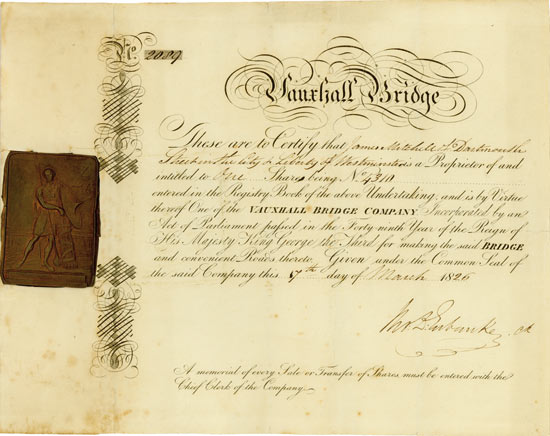 No. 2089
Vauxhall Bridge
These are to Certify that James Mitchell of Dartmouth
Street in the City & Liberty of Westminster is a Proprietor of and
intitled to One Share being No. 4310
entered in the Registry Book of the above Undertaking, and is by Virtue
thereof One of the VAUXHALL BRIDGE COMPANY Incorporated by an
Act of Parliament passed in the Forty-ninth Year of the Reign of
His Majesty King George the Third for making the said BRIDGE
and convenient Roads thereto, Given under the Common Seal of
the said Company this 17th day of March 1826
A memorial of every Sale or Transfer of Shares must be entered with the
Chief Clerk of the Company.